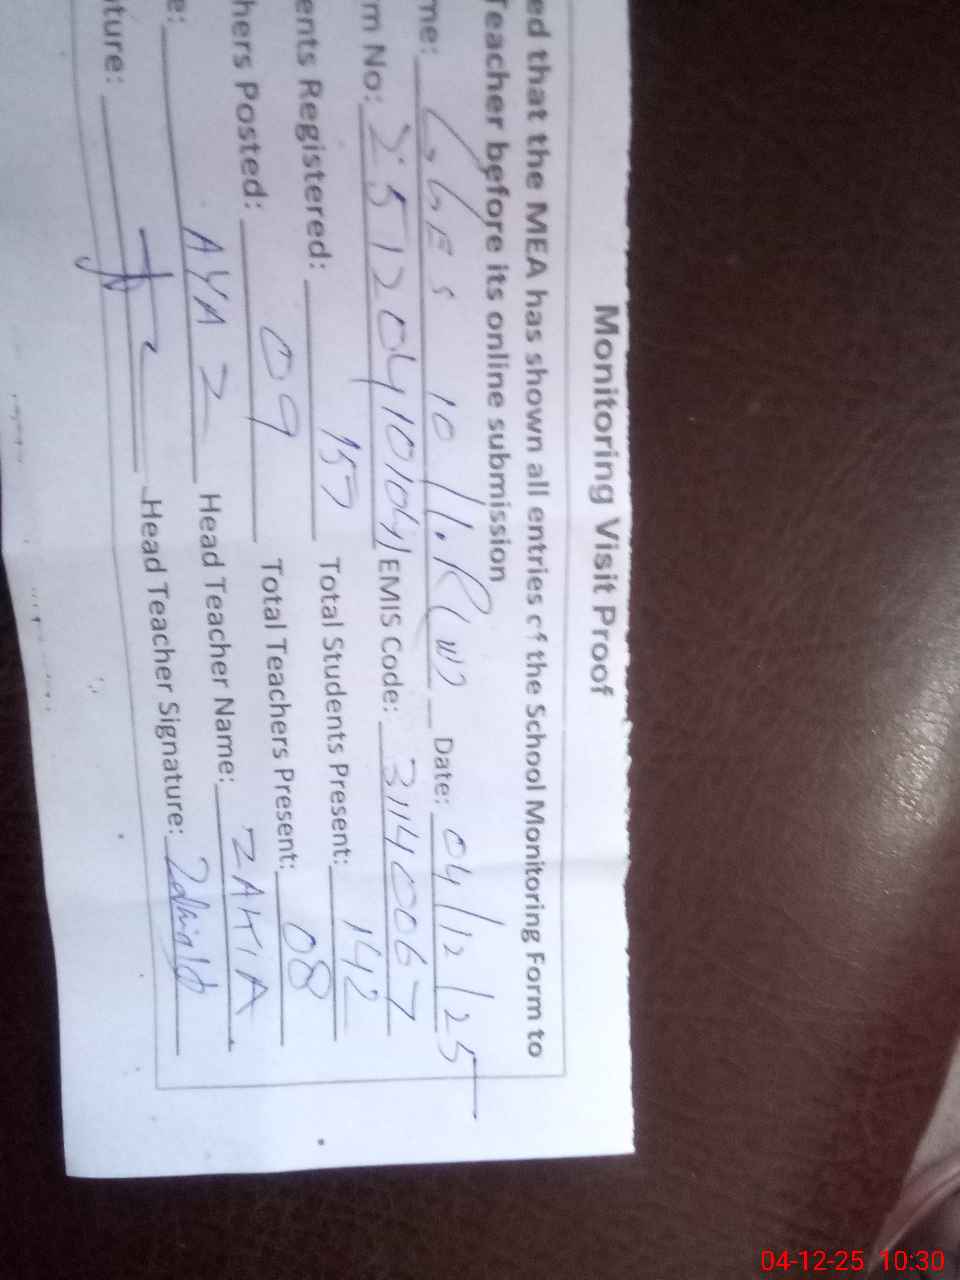 Monitoring Visit Proof
ed that the MEA has shown all entries of the School Monitoring Form to
Teacher before its online submission
me: GGES 10 11.R (W) Date: 04/12/25
m No: 251204101041 EMIS Code: 31140067
ents Registered: 157 Total Students Present: 142
hers Posted: 09 Total Teachers Present: 08
e: AYAZ Head Teacher Name: ZAKIA
ture: Head Teacher Signature:
04-12-25 10:30